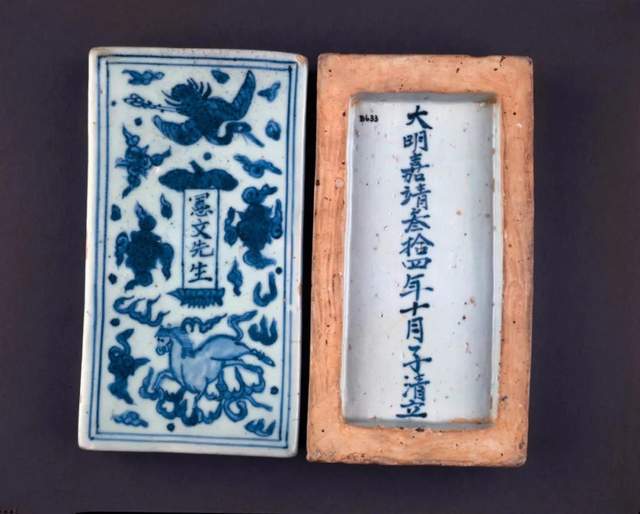 憲文先生
B633
大明嘉靖叁拾四年十月子清立